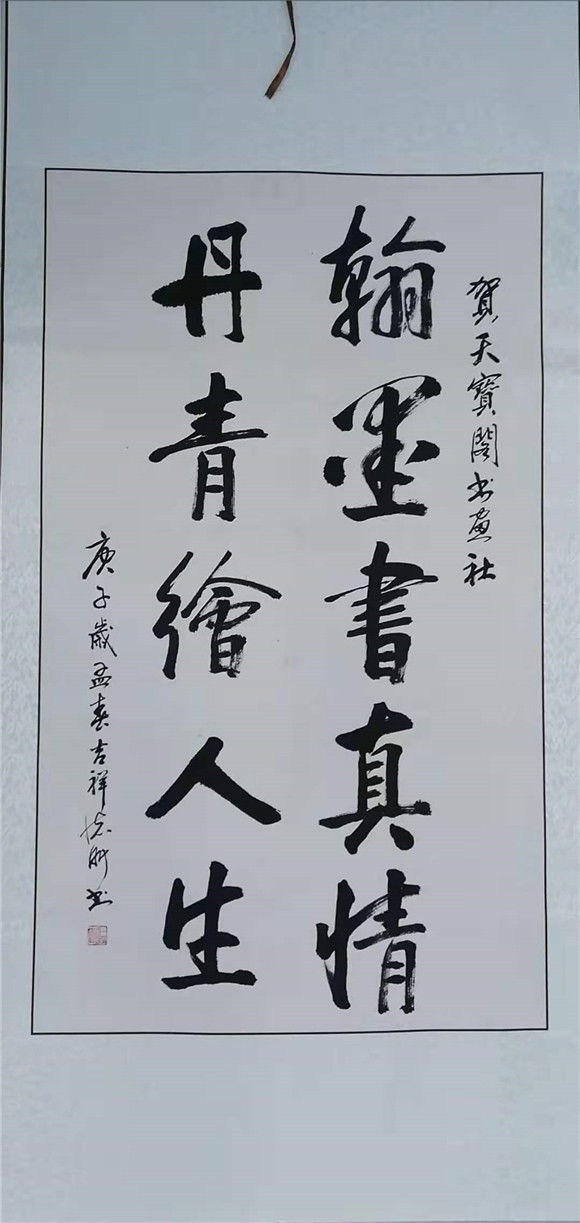 賀天寶閣书画社
翰墨書真情
丹青繪人生
庚子歲孟春吉祥
书